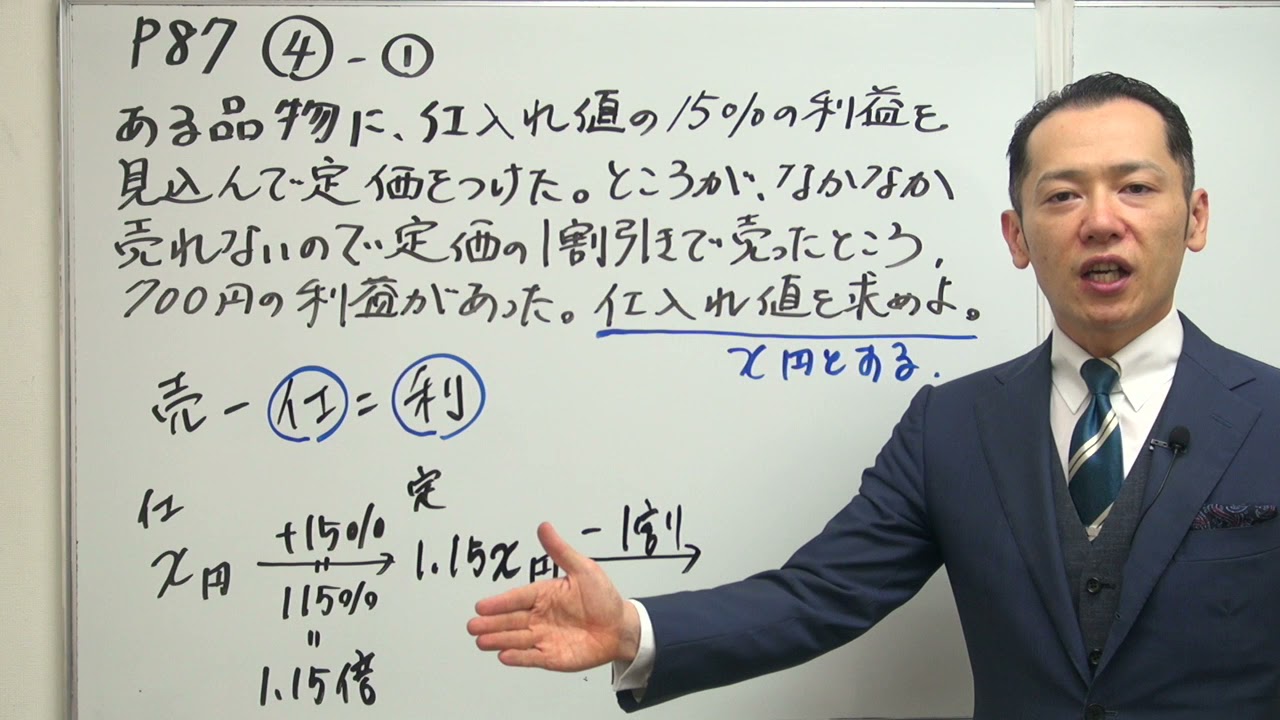 P87 ④-①
ある品物に、仕入れ値の15%の利益を
見込んで定価をつけた。ところが、なかなか
売れないので定価の1割引きで売ったところ、
700円の利益があった。仕入れ値を求めよ。
x円とする.
売-仕=利
仕 定
x円 +15% 1.15x円 -1割
115%
"
1.15倍